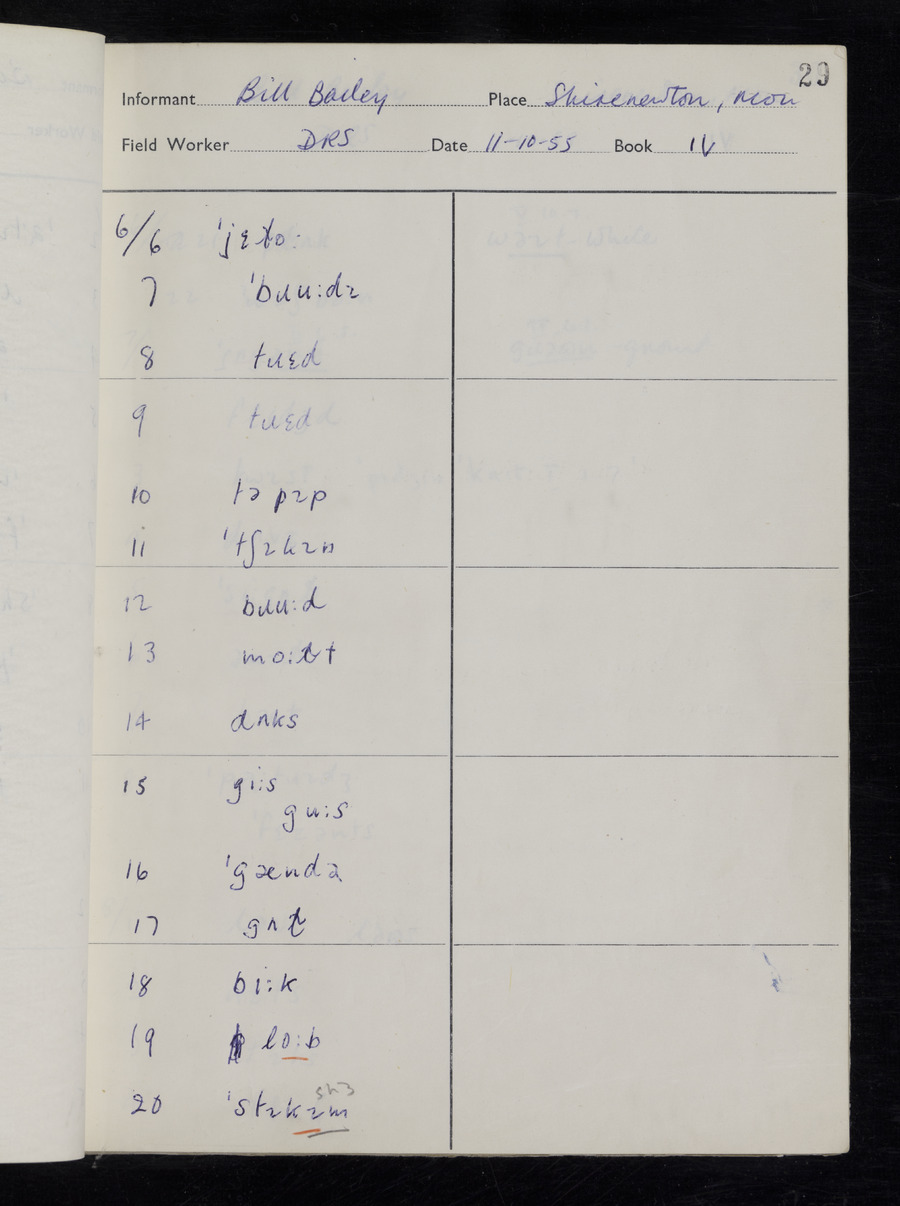 29
Informant Bill Bailey Place Shirenewton, Mon
Field Worker DRS Date 11-10-55 Book IV
6/6 ˈjɛɫoː
7 ˈbɹuːdɪ
8 tɹɛd
9 tɹɛd
10 tə pɪp
11 ˈtʃɪkɪn
12 bɹuːd
13 moːɫt
14 dʌks
15 giːs
guːs
16 ˈgændə
17 gʌɫ
18 biːk
19 loːb
sh3
20 ˈstɪkɪm